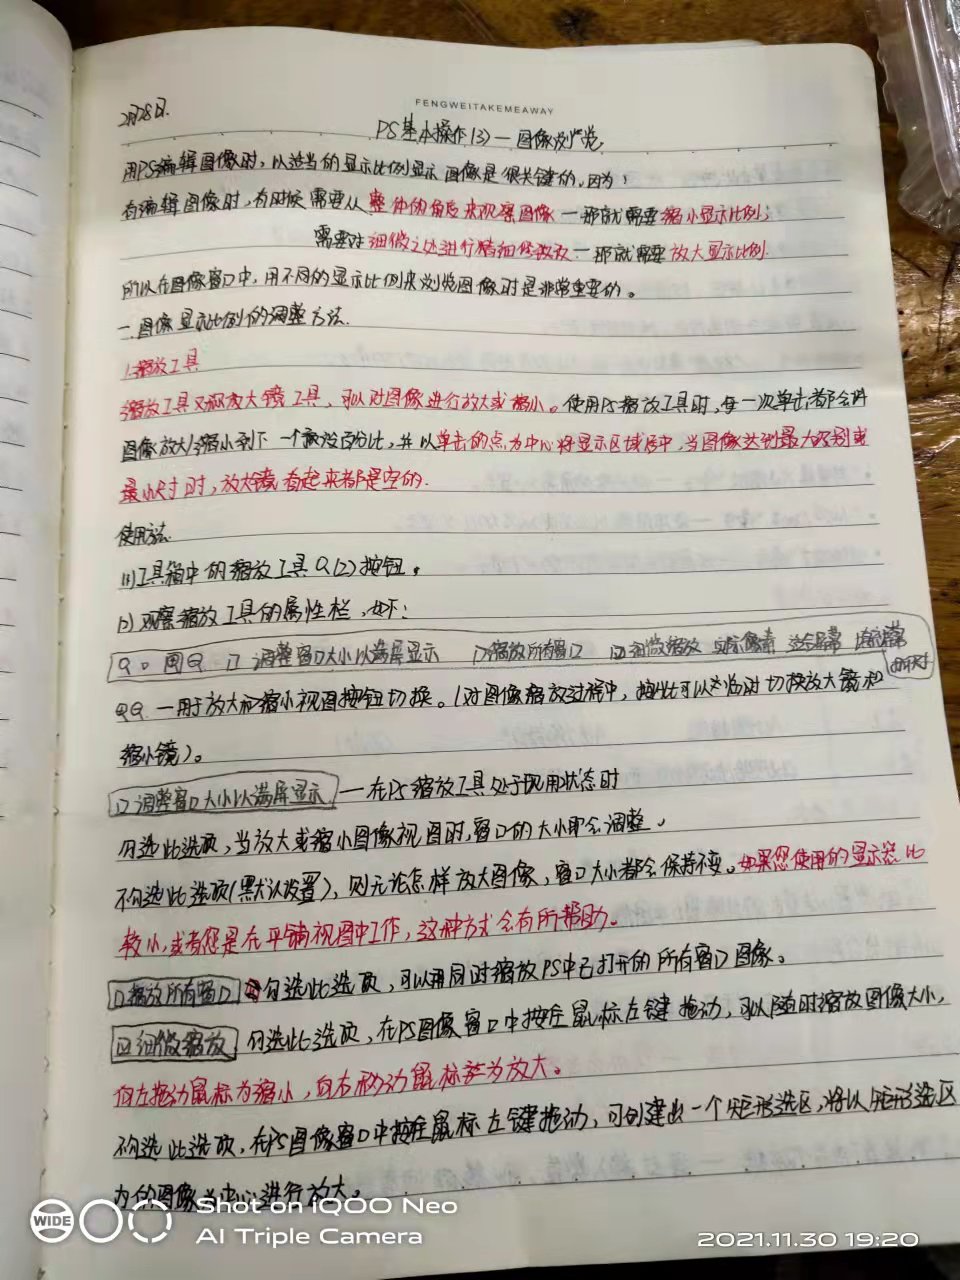 FENGWEITAKEMEAWAY
2月28日.
PS基本操作(3)一图像浏览
用PS编辑图像时,以适当的显示比例显示图像是很关键的,因为:
有编辑图像时,有时候需要从整体的角度来观察图像一那就需要缩小显示比例;
需要对细微之处进行精细修改一那就需要放大显示比例.
所以在图像窗口中,用不同的显示比例来浏览图像时是非常重要的。
一.图像显示比例的调整方法.
1.缩放工具
缩放工具又称放大镜工具,可以对图像进行放大或缩小。使用PS缩放工具时,每一次单击都会将
图像放大/缩小到下一个预设百分比,并以单击的点为中心将显示区域居中,当图像达到最大级别或
最小尺寸时,放大镜看起来都是空的.
使用方法
(1)工具箱中的缩放工具Q(Z)按钮。
(2)观察缩放工具的属性栏,如下:
口 调整窗口大小以满屏显示 口缩放所有窗口 细微缩放 实际像素 适合屏幕 填充屏幕
QQ 一用于放大和缩小视图按钮切换。(对图像缩放过程中,按 可以 临时切换放大镜和
缩小镜)。
口调整窗口大小以满屏显示 一在PS缩放工具处于现用状态时
勾选此选项,当放大或缩小图像视图时,窗口的大小即会调整。
不勾选此选项(默认设置),则无论怎样放大图像,窗口大小都会保持不变。如果您使用的显示器比
较小,或者您是在平铺视图中工作,这种方式会有所帮助。
口缩放所有窗口 勾选此选项,可以用同时缩放PS中已打开的所有窗口图像。
细微缩放 勾选此选项,在PS图像窗口中按住鼠标左键拖动,可以随时缩放图像大小,
向左拖动鼠标为缩小,向右移动鼠标为放大。
不勾选此选项,在PS图像窗口中按住鼠标左键拖动,可创建出一个矩形选区,将以矩形选区
内的图像为中心进行放大。
WIDE
Shot on iQOO Neo
AI Triple Camera
2021.11.30 19:20